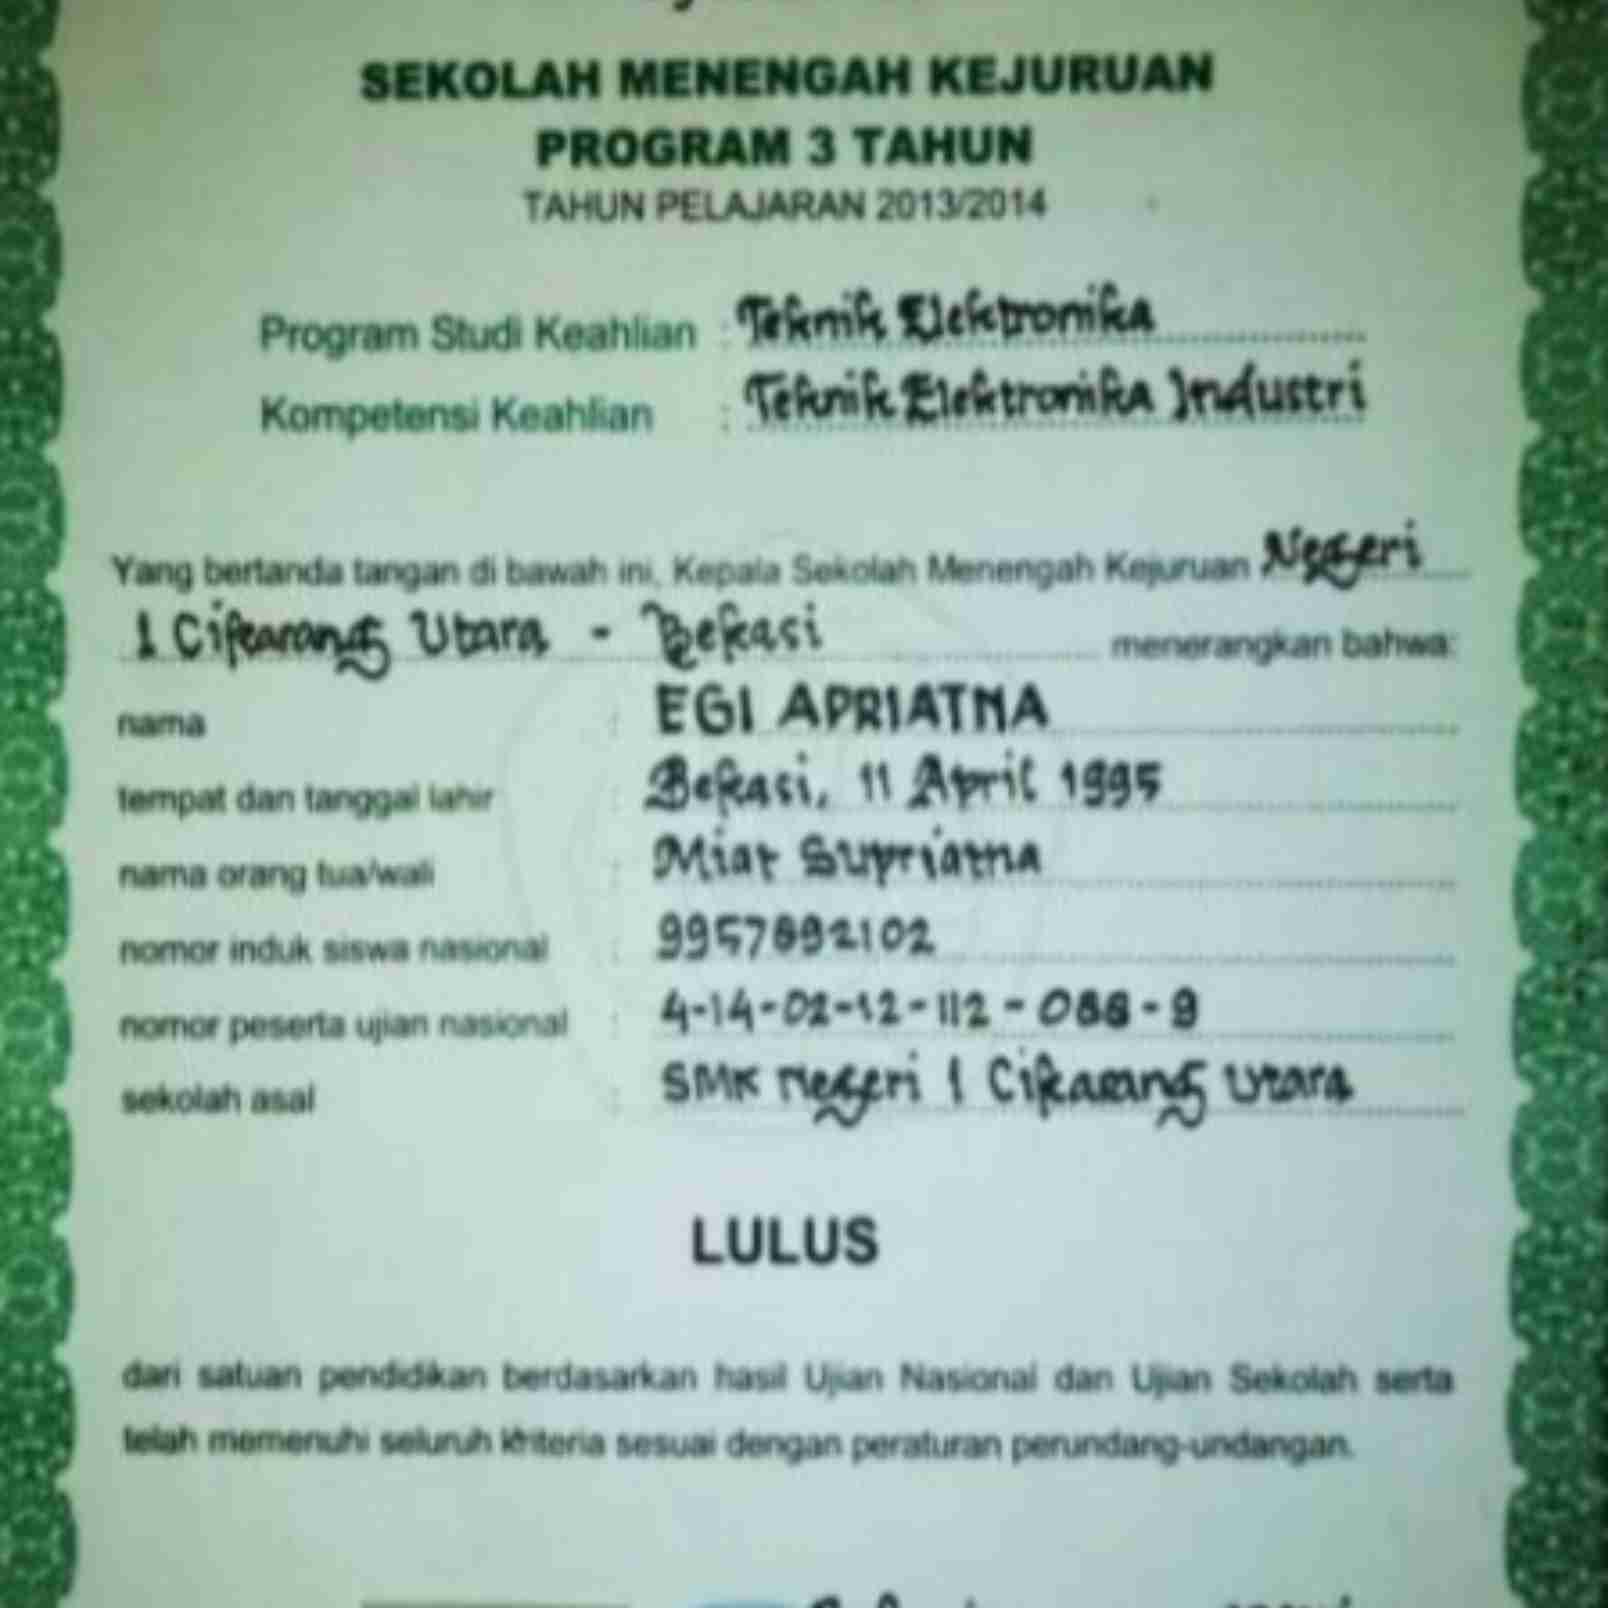 SEKOLAH MENENGAH KEJURUAN
PROGRAM 3 TAHUN
TAHUN PELAJARAN 2013/2014
Program Studi Keahlian : Teknik Elektronika
Kompetensi Keahlian : Teknik Elektronika Industri
Yang bertanda tangan di bawah ini, Kepala Sekolah Menengah Kejuruan Negeri
1 Cikarang Utara - Bekasi menerangkan bahwa:
nama : EGI APRIATNA
tempat dan tanggal lahir : Bekasi, 11 April 1995
nama orang tua/wali : Miat Supriatna
nomor induk siswa nasional : 9957892102
nomor peserta ujian nasional : 4-14-02-12-112-088-9
sekolah asal : SMK Negeri 1 Cikarang Utara
LULUS
dari satuan pendidikan berdasarkan hasil Ujian Nasional dan Ujian Sekolah serta
telah memenuhi seluruh kriteria sesuai dengan peraturan perundang-undangan.